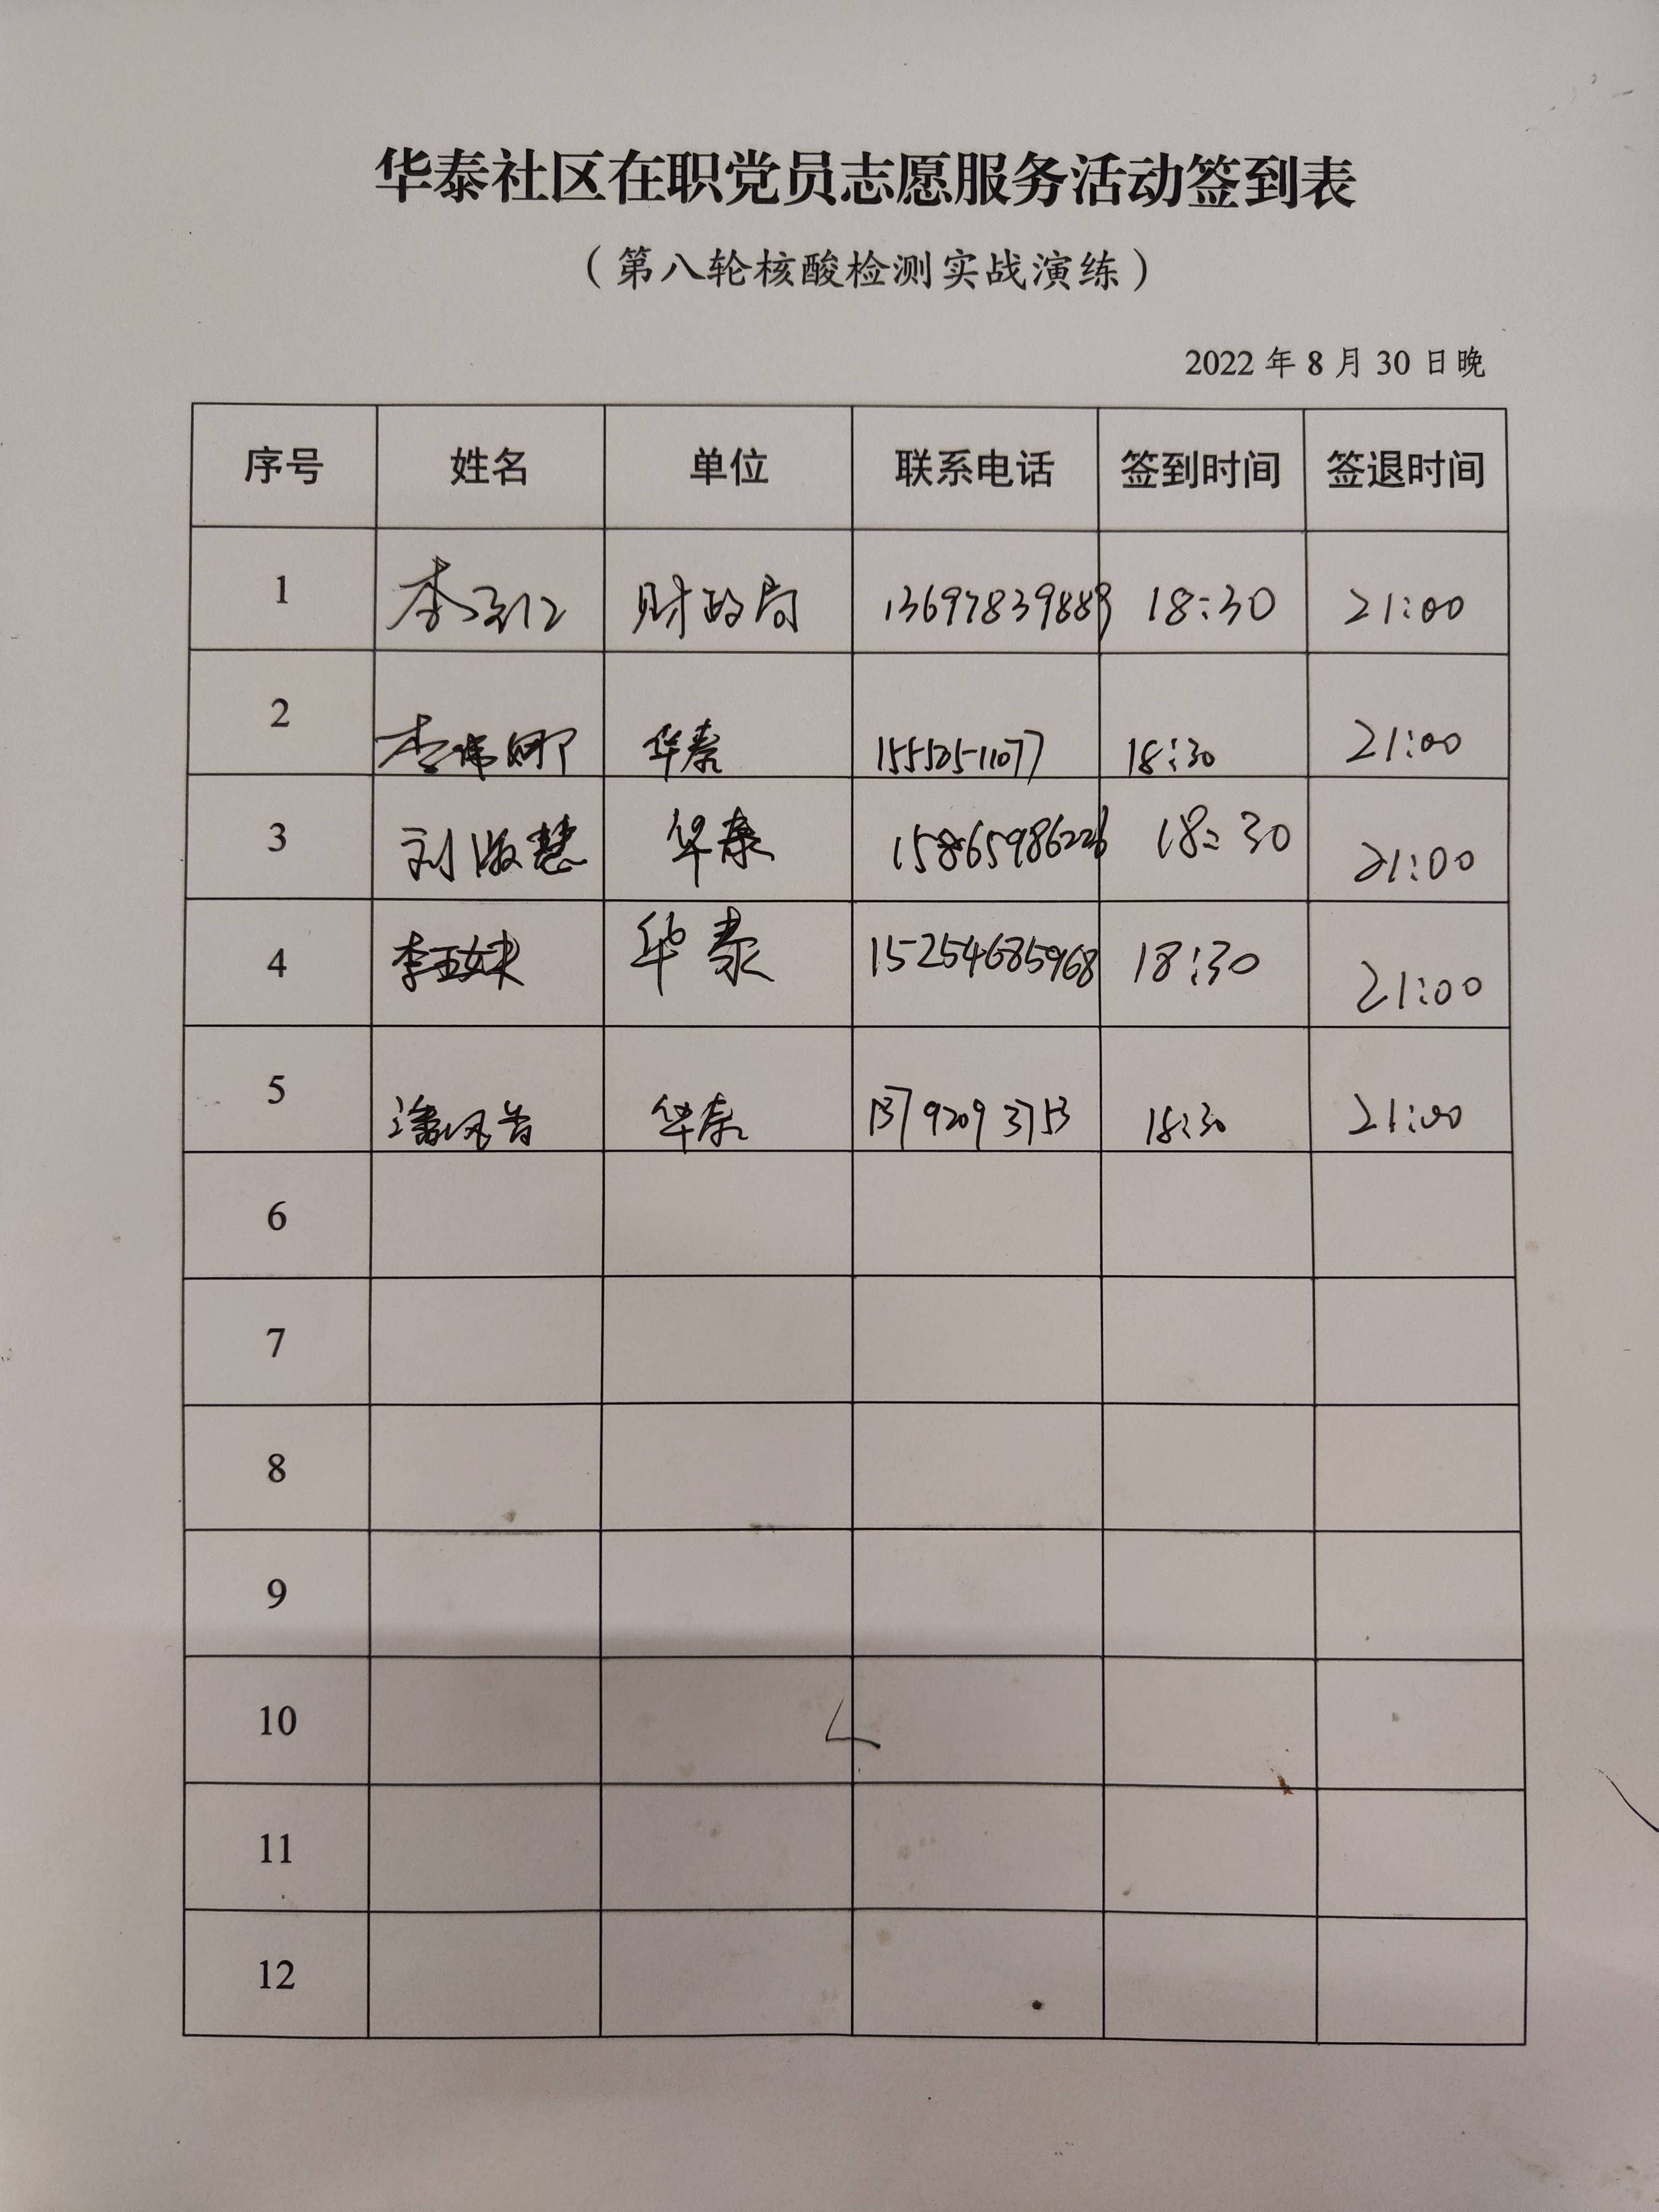 华泰社区在职党员志愿服务活动签到表
（第八轮核酸检测实战演练）
2022 年 8 月 30 日晚
序号 姓名 单位 联系电话 签到时间 签退时间
1 李 财政局 13697839889 18:30 21:00
2 李伟娜 华泰 15552511077 18:30 21:00
3 刘淑慧 华泰 15865986226 18:30 21:00
4 李 华泰 152254685968 18:30 21:00
5 潘凤 华泰 13792093753 18:30 21:00
6
7
8
9
10
11
12